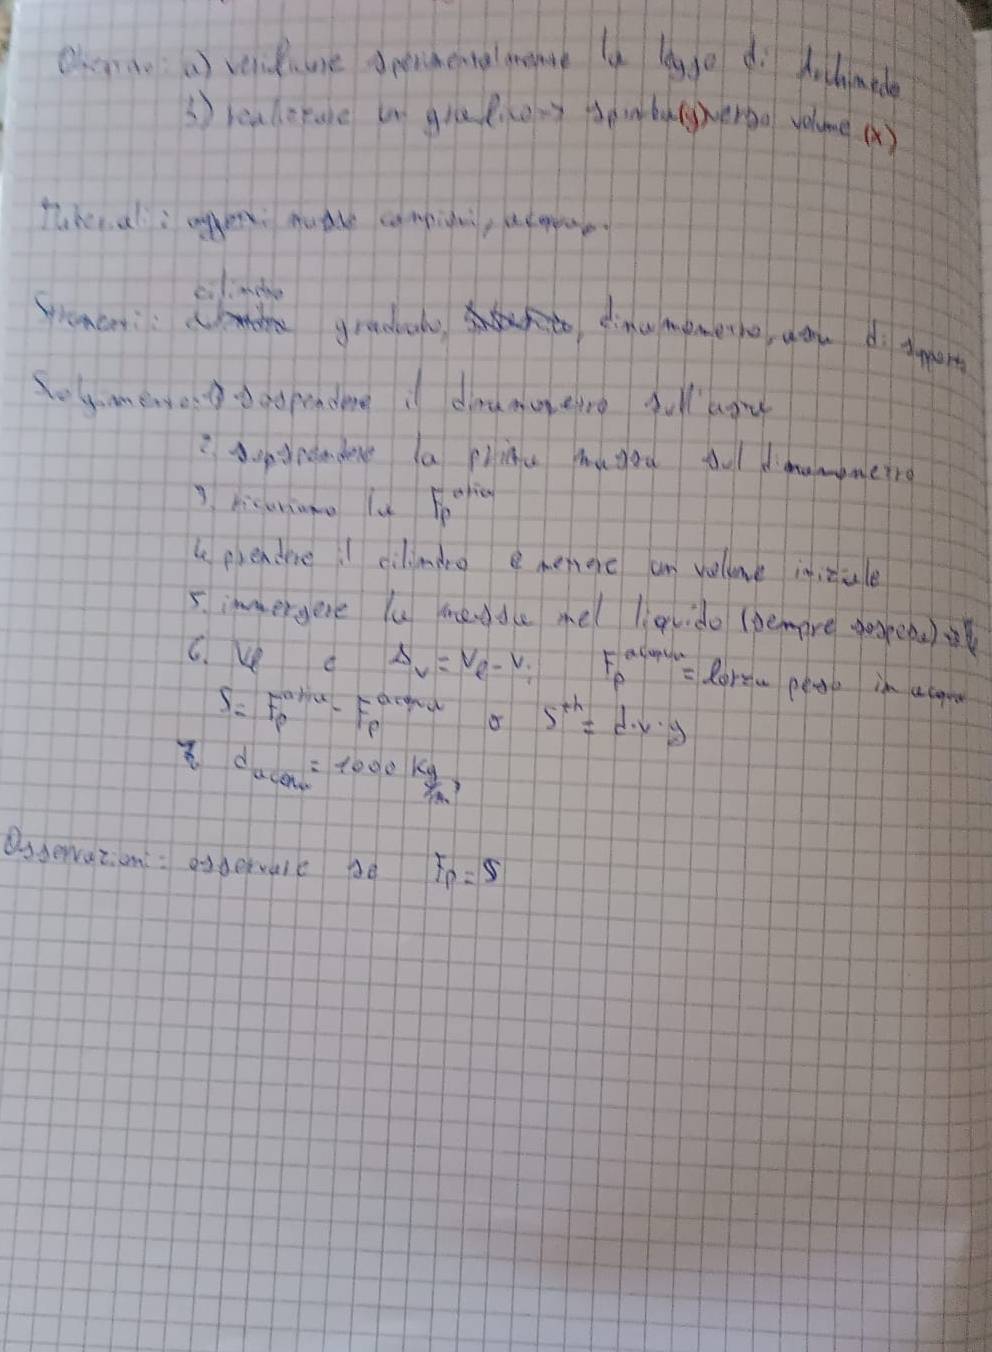 Obiettivo: a) verificare sperimentalmente la legge di Archimede
b) realizzare un grafico → spinta (y) verso volume (x)
Materiali: oggetti masse campioni, acqua.
cilindro
Strumenti: graduato, dinamometro, asta di supporto
Svolgimento: 1) sospendere il dinamometro sull'asta
2. sospendere la prima massa sul dinamometro
3. ricaviamo la Fp^aria
4. prendere il cilindro e mettere un volume iniziale
5. immergere la massa nel liquido (sempre sospesa)
6. Vf e Δv = Vf - Vi Fp^acqua = forza peso in acqua
S = Fp^aria - Fp^acqua o S^th = d·v·g
7. d acqua = 1000 Kg/m³
Osservazioni: osservare se Fp = S